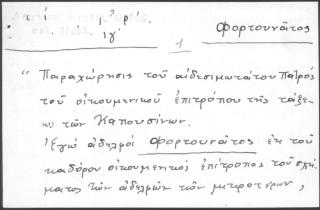 ιγ´
1
Φορτουνᾶτος
"Παραχώρησις τοῦ αἰδεσιμωτάτου Πατρός
τοῦ οἰκουμενικοῦ ἐπιτρόπου τῆς τάξε-
ως τῶν Καπουσίνων.
Ἐγώ ἀδελφός Φορτουνᾶτος ἐκ τοῦ
καδόρου οἰκουμενικός ἐπίτροπος τοῦ σχή-
ματος τῶν ἀδελφῶν τῶν μικροτέρων,